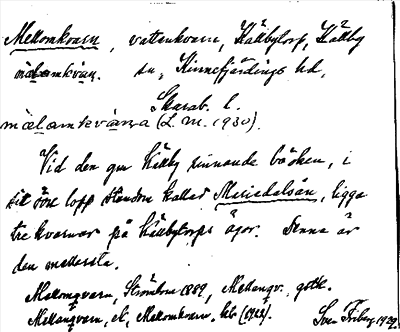 Mellomkvarn, vattenkvarn, Källbytorp, Källby
mälamkvän. sn, Kinnefjärdings hd,
Skarab. l.
mälamkväna (L. M. 1930).
Vid den gm Källby rinnande bäcken, i
sitt övre lopp stundom kallad Mariedalsån, ligga
tre kvarnar på Källbytorps ägor. Denna är
den mellersta.
Mellomqvarn, Strömbom 1889, Mellanqv. geolk.
Mellanqvarn, el. Mellomkvarn. (1922). Sven Friberg 1929